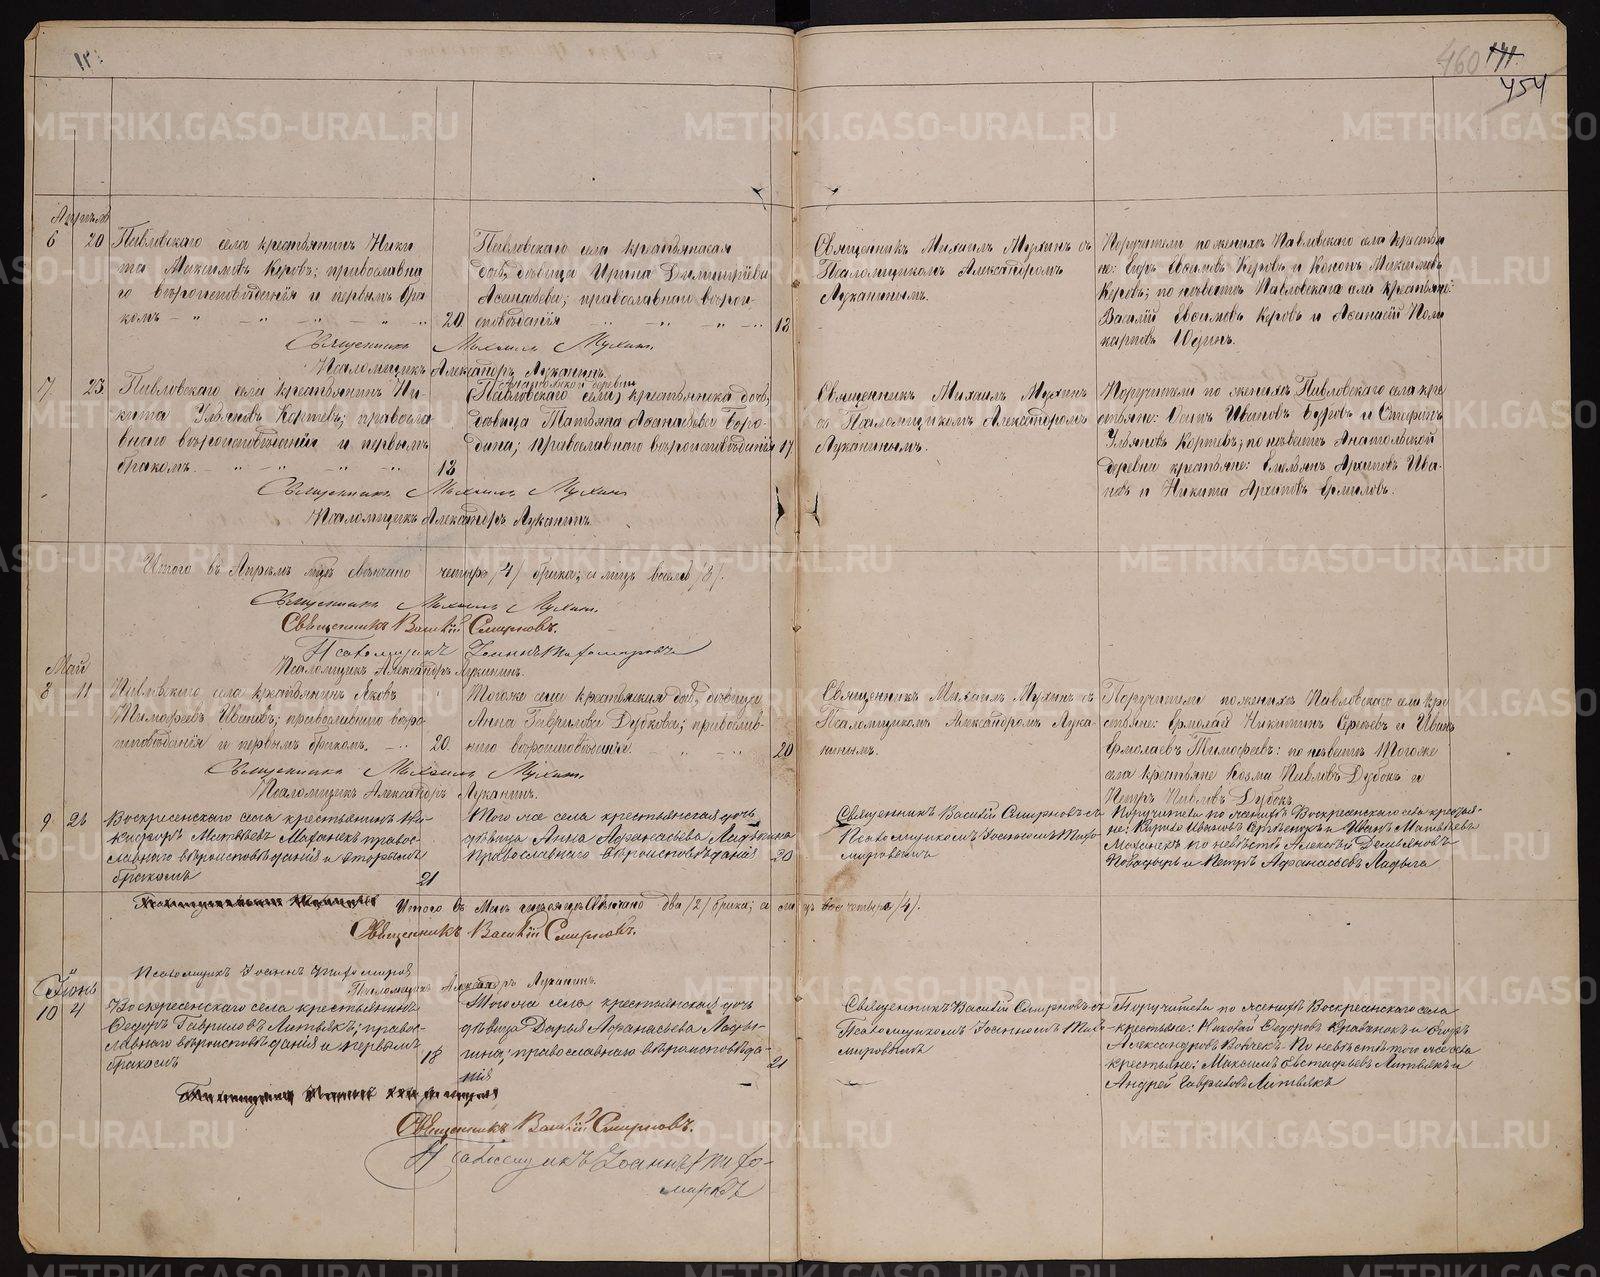 12.
460
454
Апрѣль
6 20 Павловскаго села крестьянинъ Ники-
та Максимовъ Керовъ; православна-
го вѣроисповѣданія и первымъ бра-
комъ 20
Павловскаго села крестьянская
дочь, дѣвица Ирина Димитріева
православнаго вѣрои-
сповѣданія 18
Священникъ Михаилъ Мухинъ съ
Псаломщикомъ Александромъ
Луканинымъ.
Поручители по женихѣ Павловскаго села крестья-
не: Егоръ Керовъ и Кононъ Максимовъ
Керовъ; по невѣстѣ Павловскаго села крестьяне:
Василій Керовъ и Аѳанасій Поли-
карповъ Юдинъ.
Священникъ Михаилъ Мухинъ.
Псаломщикъ Александръ Луканинъ.
7 23 Павловскаго села крестьянинъ Ни-
кита Ульяновъ Кортевъ; правосла-
внаго вѣроисповѣданія и первымъ
бракомъ. 18
Анатольской деревни
(Павловскаго села) крестьянская дочь,
дѣвица Татьяна Аѳанасьева Боро-
дина; православнаго вѣроисповѣданія 17
Священникъ Михаилъ Мухинъ
съ Псаломщикомъ Александромъ
Луканинымъ.
Поручители по женихѣ Павловскаго села кре-
стьяне: Ивановъ и
Ульяновъ Кортевъ; по невѣстѣ Анатольской
деревни крестьяне: Емельянъ Архиповъ Ива-
новъ и Никита Архиповъ Ермиловъ.
Священникъ Михаилъ Мухинъ
Псаломщикъ Александръ Луканинъ.
Итого въ Апрѣлѣ мцѣ свѣнчано четыре /4/ брака; а лицъ восемь /8/.
Священникъ Михаилъ Мухинъ.
Священникъ Василій Смирновъ.
Псаломщикъ Іоаннъ Тифомировъ
Псаломщикъ Александръ Луканинъ.
Май
8 11 Павловскаго села крестьянинъ Яковъ
Тимофеевъ Ивановъ; православнаго вѣро-
исповѣданія и первымъ бракомъ. 20
Тогоже села крестьянская дочь, дѣвица
Анна Гаврилова Дубкова; православ-
наго вѣроисповѣданія 20
Священникъ Михаилъ Мухинъ съ
Псаломщикомъ Александромъ Лука-
нинымъ.
Поручители по женихѣ Павловскаго села кре-
стьяне: Ермолай Никитинъ Сергѣевъ и Иванъ
Ермолаевъ Тимофеевъ: по невѣстѣ Тогоже
села крестьяне Козма Павловъ Дубокъ и
Петръ Павловъ Дубокъ
Священникъ Михаилъ Мухинъ.
Псаломщикъ Александръ Луканинъ.
9 Воскресенскаго села крестьянинъ Ни-
Матвѣевъ Маханекъ правос-
лавнаго вѣроисповѣданія и вторымъ
бракомъ 21
Того же села крестьянская дочь
дѣвица Анна Афанасьева Ладыгина
Православнаго вѣроисповѣданія 20
Священникъ Василій Смирновъ съ
Псаломщикомъ Іоанномъ Тифо-
мировымъ
Поручители по женихѣ Воскресенскаго села крестья-
не: Ивановъ и Иванъ Матвѣевъ
Маханекъ по невѣстѣ Алексѣй Демьяновъ
и Петръ Афанасьевъ Ладыга
Итого въ Маѣ мѣсяцѣ свѣнчано два /2/ брака; а лицъ всѣхъ четыре /4/.
Священникъ Василій Смирновъ.
Псаломщикъ Іоаннъ Тифомировъ
Псаломщикъ Александръ Луканинъ.
Іюнь
10 4 Воскресенскаго села крестьянинъ
Федоръ Гавриловъ Литвякъ; право-
славнаго вѣроисповѣданія и первымъ
бракомъ 18
Того же села крестьянская дочь
дѣвица Дарья Афанасьева Лады-
гина; православнаго вѣроисповѣда-
нія 21
Священникъ Василій Смирновъ съ
Псаломщикомъ Іоанномъ Тифо-
мировымъ
Поручители по женихѣ Воскресенскаго села
крестьяне: Николай Федоровъ и Федоръ
Александровъ По невѣстѣ того же села
крестьяне: Максимъ Евстафьевъ Литвякъ и
Андрей Гавриловъ Литвякъ
Священникъ Василій Смирновъ.
Псаломщикъ Іоаннъ Тифо-
мировъ
METRIKI.GASO-URAL.RU